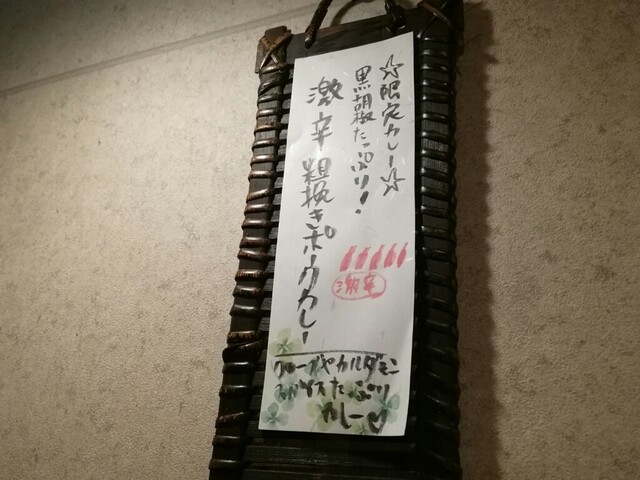 ☆限定カレー☆
黒胡椒たっぷり!
激辛粗挽きポークカレー
激辛
クローブやカルダモン
スパイスたっぷり
カレー♡